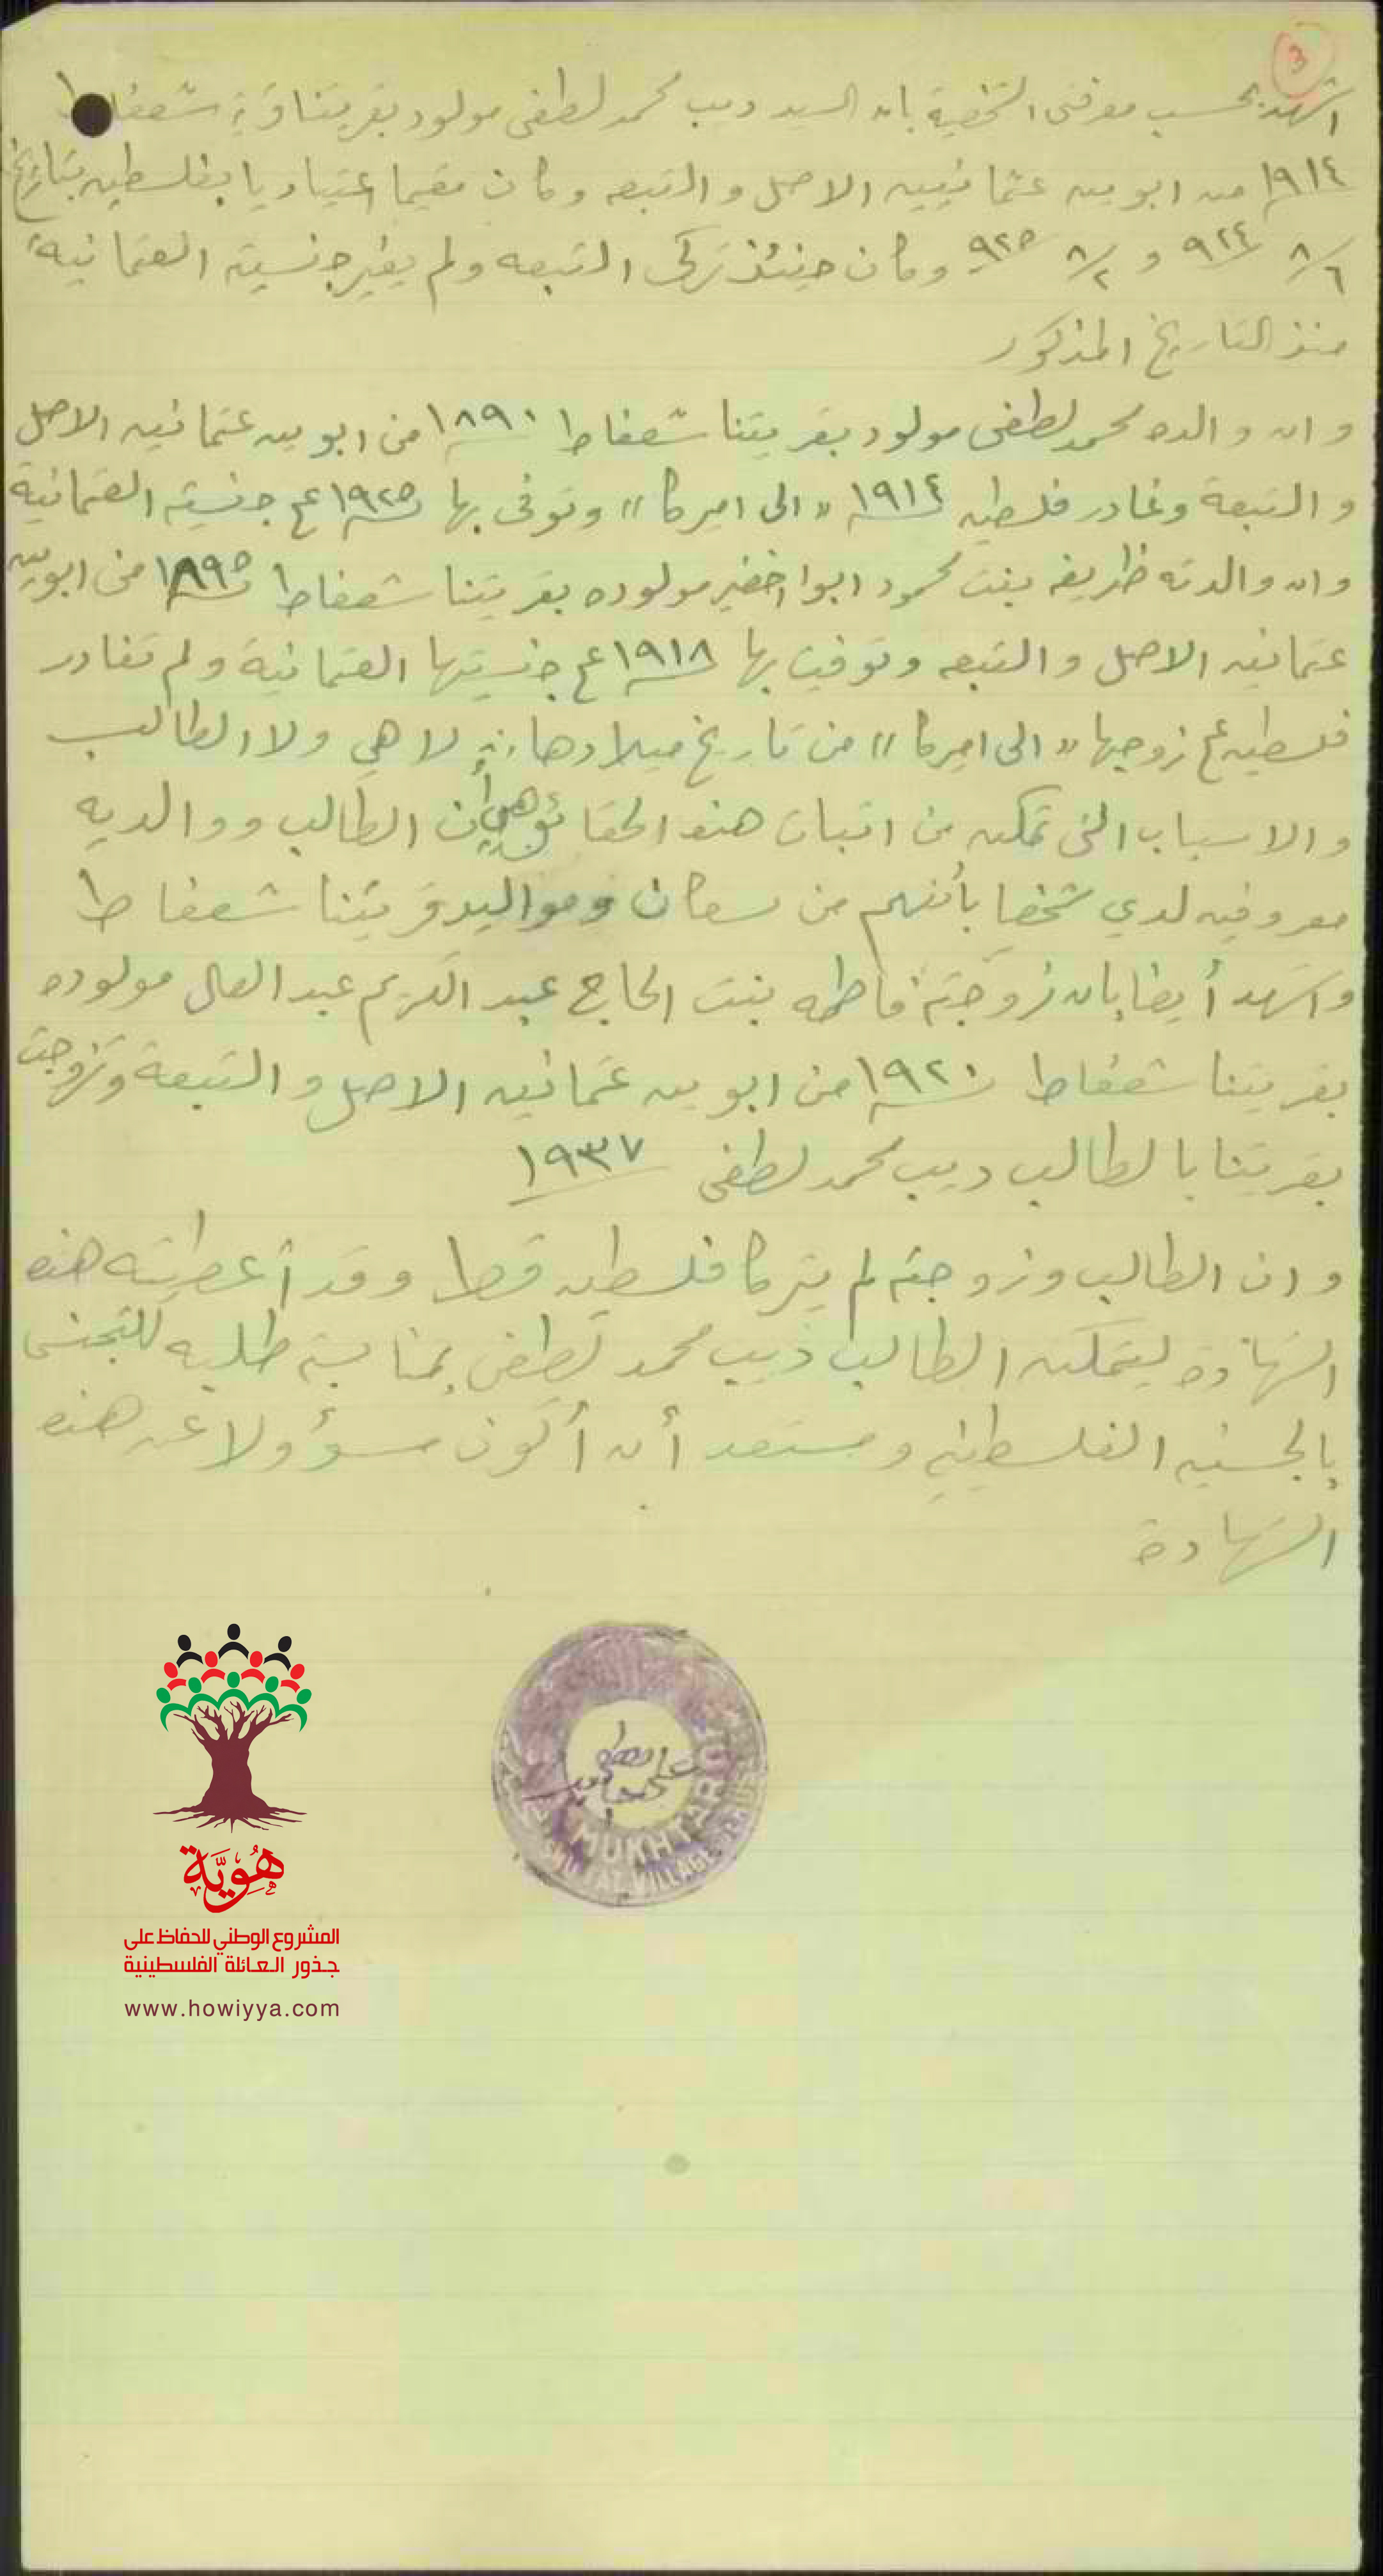 3
اشهد بحسب معرفتي الشخصية بان السيد ديب محمد لطفي مولود بقريتنا قرية شعفاط
١٩١٤ من ابوين عثمانيين الاصل والتبعه وكان مقيما اعتياديا بفلسطين بتاريخ
٦/٨ ٩٢٤ و ٢/٨ ٩٢٥ وكان حينئذ تركي التبعه ولم يغير جنسيته العثمانية
منذ التاريخ المذكور
وان والده محمد لطفي مولود بقريتنا شعفاط ١٨٩٠ من ابوين عثمانين الاصل
والتبعة وغادر فلسطين ١٩١٤ "الى اميركا" وتوفى بها ١٩٢٥ ع جنسيته العثمانية
وان والدته ظريفه بنت محمود ابوا خضير مولوده بقريتنا شعفاط ١٨٩٥ من ابوين
عثمانين الاصل والتبعه وتوفيت بها ١٩١٨ ع جنسيتها العثمانية ولم تغادر
فلسطين ع زوجها "الى اميركا" من تاريخ ميلادها لا هي ولا الطالب
والاسباب التي تمكن من اثبات هذه الحقائق هي أن الطالب ووالديه
معروفين لدي شخصا بأنهم من سكان ومواليد قريتنا شعفاط
واشهد أيضا بان زوجته فاطمه بنت الحاج عبد الكريم عبد العال مولوده
بقريتنا شعفاط ١٩٢٠ من ابوين عثمانين الاصل والتبعة وتزوجت
بقريتنا بالطالب ديب محمد لطفي ١٩٣٧
وان الطالب وزوجته لم يتركا فلسطين قط وقد أعطيته هذه
الشهادة ليتمكن الطالب ذيب محمد لطفي بمناسبة طلبه للتجنس
بالجنسيه الفلسطينيه ومستعد أن أكون مسؤولا عن هذه
الشهادة
MUKHTAR OF
VILLAGE
هُوِيَّة
المشروع الوطني للحفاظ على
جذور العائلة الفلسطينية
www.howiyya.com